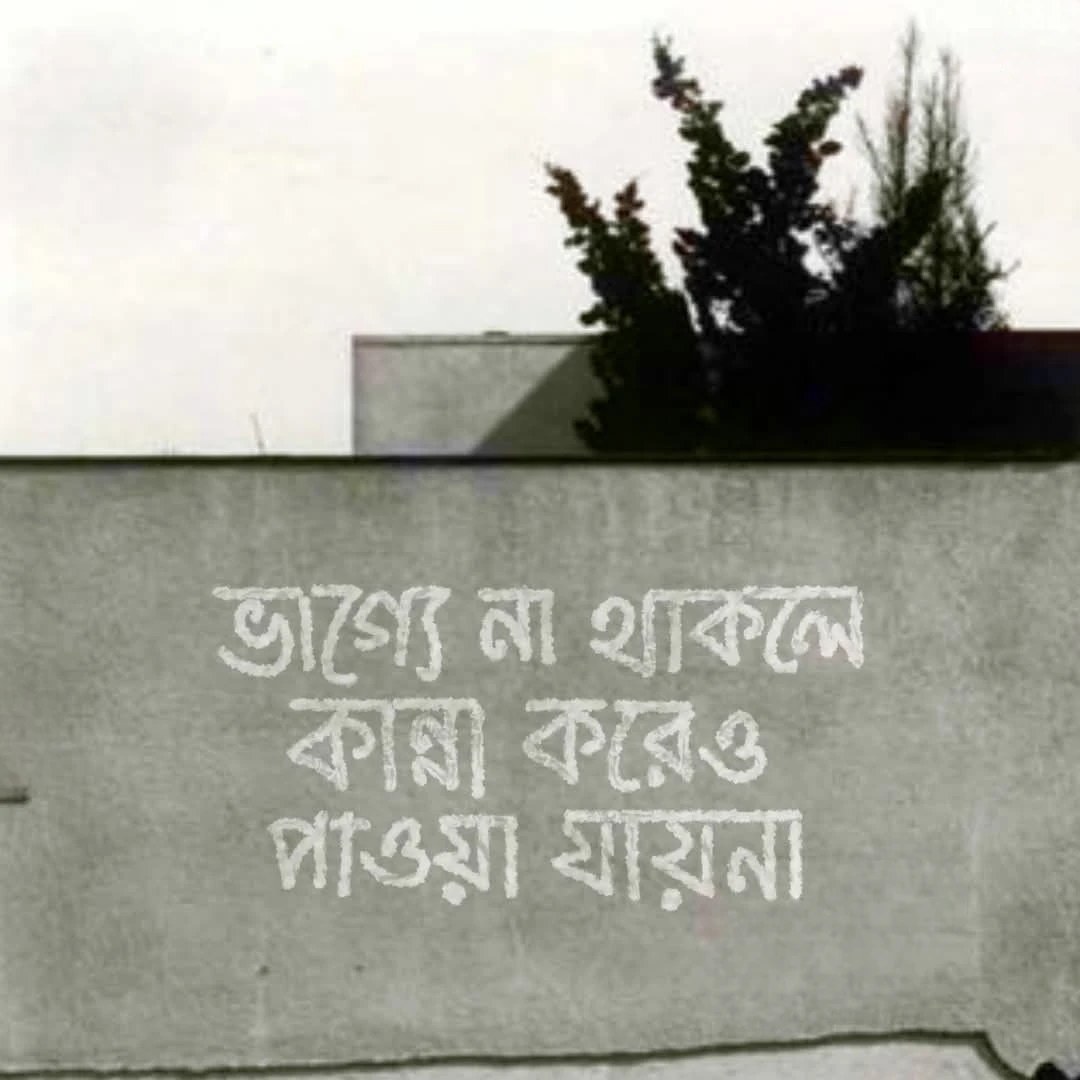 ভাগ্যে না থাকলে
কান্না করেও
পাওয়া যায়না